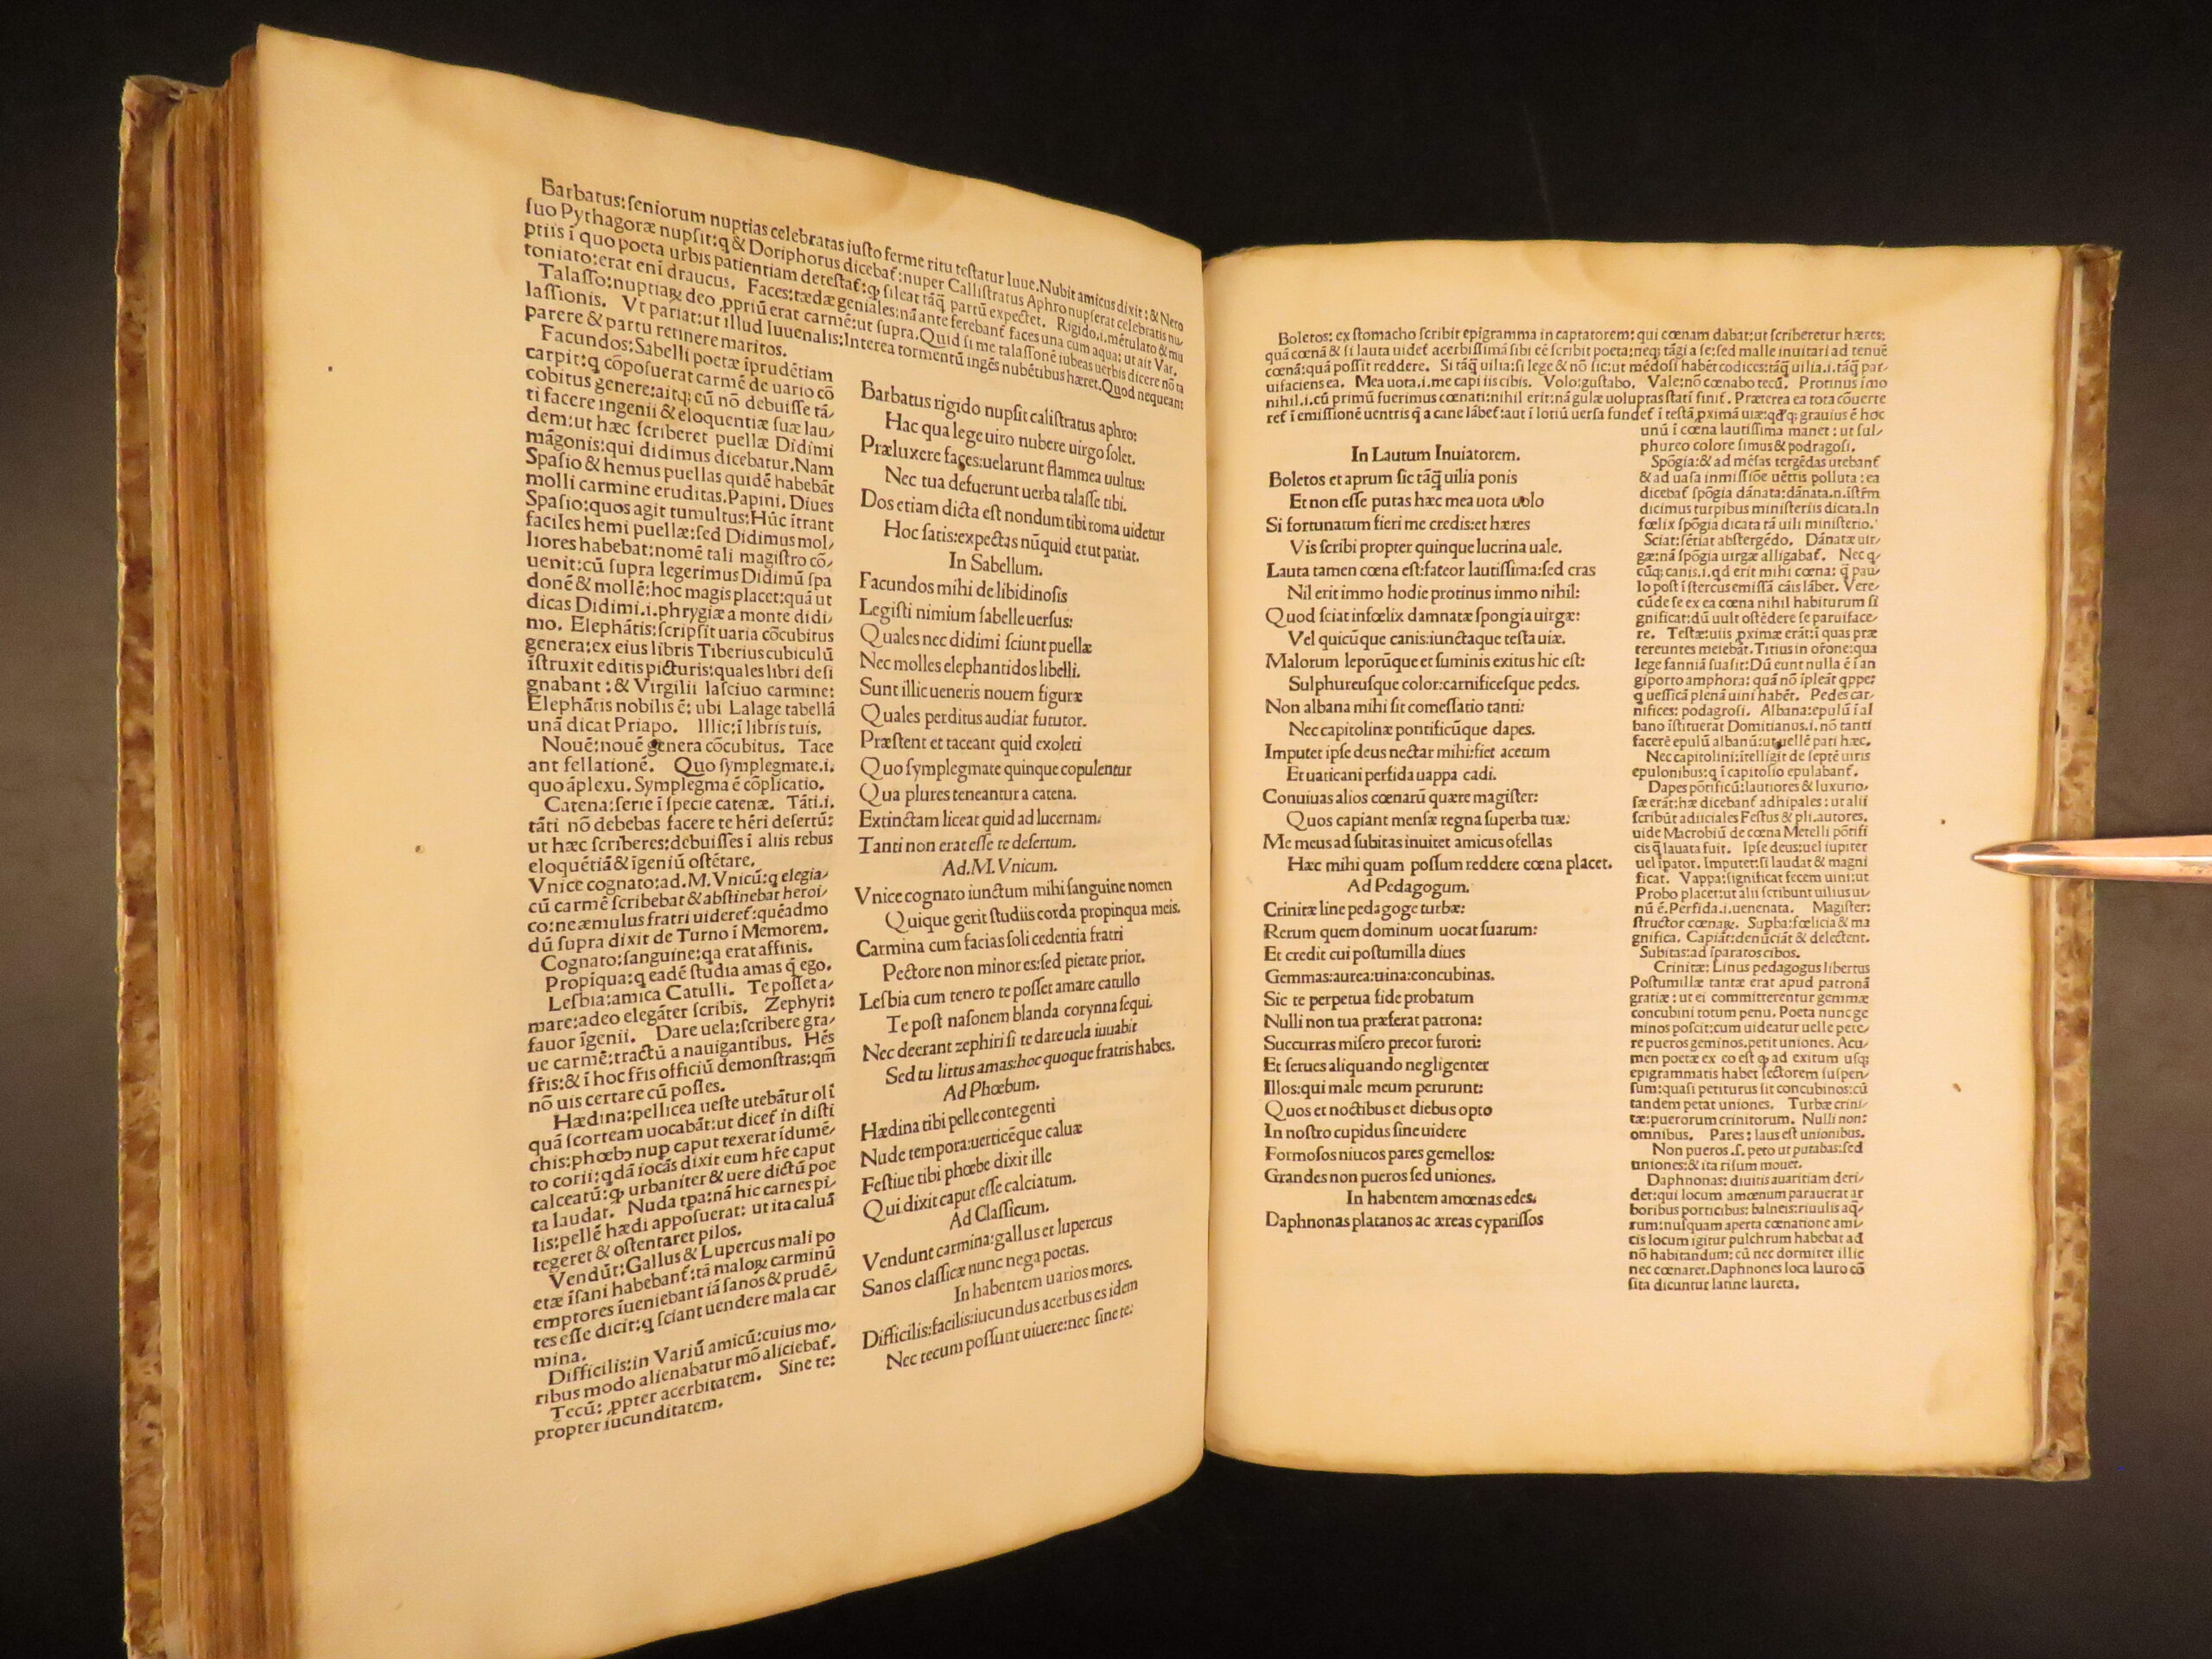 Barbatus:ſeniorum nuptias celebratas iuſto ferme ritu teſtatur Iuue.Nubit amicus dixit:& Nero
ſuo Pythagoræ nupſit:q & Doriphorus dicebat̄:nuper Calliſtratus Aphro nupſerat celebratis nu
ptiis ī quo poeta urbis patientiam deteſtat̄:ꝙ ſileat tāq̄ partū expectet. Rigido.i.mētulato & mu
toniato:erat enī draucus. Faces:tædæ geniales:nā ante ferebant̄ faces una cum aqua:ut ait Var.
Talaſſo:nuptiaꝝ deo ꝓpriū erat carmē:ut ſupra.Quid ſi me talaſſonē iubeas uerbis dicere nō ta
laſſionis. Vt pariat:ut illud Iuuenalis:Interea tormentū ingēs nubētibus hæret.Quod nequeant
parere & partu retinere maritos.
Facundos:Sabelli poetæ īprudētiam
carpit:q cōpoſuerat carmē de uario cō
cobitus genere:aitq; cū nō debuiſſe tā/
ti facere ingenii & eloquentiæ ſuæ lau/
dem:ut hæc ſcriberet puellæ Didimi
māgonis:qui didimus dicebatur.Nam
Spaſio & hemus puellas quidē habebāt
molli carmine eruditas.Papini. Diues
Spaſio:quos agit tumultus:Hūc ītrant
faciles hemi puellæ:ſed Didimus mol/
liores habebat:nomē tali magiſtro cō/
uenit:cū ſupra legerimus Didimū ſpa
donē & mollē:hoc magis placet:quā ut
dicas Didimi.i.phrygiæ a monte didi/
mo. Elephātis:ſcripſit uaria cōcubitus
genera:ex eius libris Tiberius cubiculū
īſtruxit editis picturis:quales libri deſi
gnabant:& Virgilii laſciuo carmine:
Elephātis nobilis ē: ubi Lalage tabellā
unā dicat Priapo. Illic:ī libris tuis.
Nouē:nouē genera cōcubitus. Tace
ant fellationē. Quo ſymplegmate.i.
quo āplexu. Symplegma ē cōplicatio.
Catena:ſerie ī ſpecie catenæ. Tāti.i.
tāti nō debebas facere te hēri deſertū:
ut hæc ſcriberes:debuiſſes ī aliis rebus
eloquētiā & īgeniū oſtētare.
Vnice cognato:ad.M.Vnicū:q elegia/
cū carmē ſcribebat & abſtinebat heroi/
co:ne æmulus fratri uideret̄:quēadmo
dū ſupra dixit de Turno ī Memorem.
Cognato:ſanguine:qa erat affinis.
Propīqua:q eadē ſtudia amas q̄ ego.
Leſbia:amica Catulli. Te poſſet a/
mare:adeo elegāter ſcribis. Zephyri:
fauor īgenii. Dare uela:ſcribere gra/
ue carmē:tractū a nauigantibus. Hēs
fr̄is:& ī hoc fr̄is officiū demonſtras:qm̄
nō uis certare cū poſſes.
Hædina:pellicea ueſte utebātur olī
quā ſcorteam uocabāt:ut dicet̄ in diſti
chis:phœbꝰ nup caput texerat īdumē/
to corii:qdā iocās dixit eum hr̄e caput
calceatū:ꝙ urbaniter & uere dictū poe
ta laudat. Nuda tꝑa:nā hic carnes pi/
lis:pellē hædi appoſuerat: ut ita caluā
tegeret & oſtentaret pilos.
Vendūt:Gallus & Lupercus mali po
etæ īſani habebant̄:tā maloꝝ carminū
emptores īueniebant iā ſanos & prudē/
tes eſſe dicit:q ſciant uendere mala car
mina.
Difficilis:in Variū amicū:cuius mo/
ribus modo alienabatur mō aliciebat̄.
Tecū: ꝓpter acerbitatem. Sine te:
propter iucunditatem.
Barbatus rigido nupſit caliſtratus aphro:
Hac qua lege uiro nubere uirgo ſolet.
Præluxere faces:uelarunt flammea uultus:
Nec tua defuerunt uerba talaſſe tibi.
Dos etiam dicta eſt nondum tibi roma uidetur
Hoc ſatis:expectas nūquid et ut pariat.
In Sabellum.
Facundos mihi de libidinoſis
Legiſti nimium ſabelle uerſus:
Quales nec didimi ſciunt puellæ
Nec molles elephantidos libelli.
Sunt illic ueneris nouem figuræ
Quales perditus audiat fututor.
Præſtent et taceant quid exoleti
Quo ſymplegmate quinque copulentur
Qua plures teneantur a catena.
Extinctam liceat quid ad lucernam.
Tanti non erat eſſe te deſertum.
Ad.M.Vnicum.
Vnice cognato iunctum mihi ſanguine nomen
Quique gerit ſtudiis corda propinqua meis.
Carmina cum facias ſoli cedentia fratri
Pectore non minor es:ſed pietate prior.
Leſbia cum tenero te poſſet amare catullo
Te poſt naſonem blanda corynna ſequi.
Nec deerant zephiri ſi te dare uela iuuabit
Sed tu littus amas:hoc quoque fratris habes.
Ad Phœbum.
Hædina tibi pelle contegenti
Nude tempora:uerticēque caluæ
Feſtiue tibi phœbe dixit ille
Qui dixit caput eſſe calciatum.
Ad Claſſicum.
Vendunt carmina:gallus et lupercus
Sanos claſſicæ nunc nega poetas.
In habentem uarios mores.
Difficilis:facilis:iucundus acerbus es idem
Nec tecum poſſunt uiuere:nec ſine te:
Boletos: ex ſtomacho ſcribit epigramma in captatorem: qui cœnam dabat:ut ſcriberetur hæres:
quā cœnā & ſi lauta uidet̄ acerbiſſimā ſibi eē ſcribit poeta:neq; tāgi a ſe:ſed malle inuitari ad tenuē
cœnā:quā poſſit reddere. Si tāq̄ uilia:ſi lege & nō ſic:ut mēdoſi habēt codices:tāq̄ uilia.i.tāq̄ par/
uifaciens ea. Mea uota.i.me capi iis cibis. Volo:guſtabo. Vale:nō cœnabo tecū. Protinus imo
nihil.i.cū primū fuerimus cœnati:nihil erit:nā gulæ uoluptas ſtatī finit̄. Præterea ea tota cōuerte
ret̄ ī emiſſionē uentris q̄ a cane lābet̄:aut ī lotiū uerſa fundet̄ ī teſtā ꝓximā uiæ:qđq; grauius ē hoc
unū ī cœna lautiſſima manet:ut ſul/
phureo colore ſimus & podragoſi.
Spōgia:& ad mēſas tergēdas utebant̄
& ad uaſa inmiſſiōe uētris polluta:ea
dicebat̄ ſpōgia dānata:dānata.n.īſtr̄m
dicimus turpibus miniſteriis dicata.In
fœlix ſpōgia dicata tā uili miniſterio.
Sciat:ſētiat abſtergēdo. Dānatæ uir/
gæ:nā ſpōgia uirgæ alligabat̄. Nec q/
cūq; canis.i.qđ erit mihi cœna: q̄ pau/
lo poſt ī ſtercus emiſſā cāis lābet. Vere/
cūde ſe ex ea cœna nihil habiturum ſi
gnificat:dū uult oſtēdere ſe paruiface/
re. Teſtæ:uiis ꝓximæ erāt:ī quas præ
tereuntes meiebāt.Titius in or̄one:qua
lege fanniā ſuaſit:Dū eunt nulla ē ſan
giporto amphora: quā nō īpleāt qppe:
q ueſſicā plenā uini habēt. Pedes car/
nifices: podagroſi. Albana:epulū ī al
bano īſtituerat Domitianus.i.nō tanti
facerē epulū albanū:ut uellē pati hæc.
Nec capitolini:ītelligit de ſeptē uiris
epulonibus:q ī capitolio epulabant̄.
Dapes pōtificū:lautiores & luxurio/
ſæ erāt:hæ dicebant̄ adhipales:ut alii
ſcribūt adiiciales Feſtus & pli.autores.
uide Macrobiū de cœna Metelli pōtifi
cis q̄ lauata fuit. Ipſe deus:uel iupiter
uel īpator. Imputet:ſi laudat & magni
ficat. Vappa:ſignificat fecem uini:ut
Probo placet:ut alii ſcribunt uilius ui/
nū ē.Perfida.i.uenenata. Magiſter:
ſtructor cœnaꝝ. Supba:fœlicia & ma
gnifica. Capiāt:denūciāt & delectent.
Subitas:ad īparatos cibos.
Crinitæ: Linus pedagogus libertus
Poſtumillæ tantæ erat apud patronā
gratiæ:ut ei committerentur gemmæ
concubini totum penu. Poeta nunc ge
minos poſcit:cum uideatur uelle pete/
re pueros geminos.petit uniones. Acu/
men poetæ ex eo eſt ꝙ ad exitum uſq;
epigrammatis habet lectorem ſuſpen/
ſum:quaſi petiturus ſit concubinos:cū
tandem petat uniones. Turbæ crini/
tæ:puerorum crinitorum. Nulli non:
omnibus. Pares:laus eſt unionibus.
Non pueros.ſ.peto ut putabas:ſed
uniones:& ita riſum mouet.
Daphnonas: diuitis auaritiam deri/
det:qui locum amœnum parauerat ar
boribus porticibus: balneis:riuulis aq̄/
rum:nuſquam aperta cœnatione ami/
cis locum igitur pulchrum habebat ad
nō habitandum: cū nec dormiret illic
nec cœnaret.Daphnones loca lauro cō
ſita dicuntur latine laureta.
In Lautum Inuiatorem.
Boletos et aprum ſic tāq̄ uilia ponis
Et non eſſe putas hæc mea uota uolo
Si fortunatum fieri me credis:et hæres
Vis ſcribi propter quinque lucrina uale.
Lauta tamen cœna eſt:fateor lautiſſima:ſed cras
Nil erit immo hodie protinus immo nihil:
Quod ſciat infœlix damnatæ ſpongia uirgæ:
Vel quicūque canis:iunctaque teſta uiæ.
Malorum leporūque et ſuminis exitus hic eſt:
Sulphureuſque color:carnificeſque pedes.
Non albana mihi ſit comeſſatio tanti:
Nec capitolinæ pontificūque dapes.
Imputet ipſe deus nectar mihi:fiet acetum
Et uaticani perfida uappa cadi.
Conuiuas alios cœnarū quære magiſter:
Quos capiant menſæ regna ſuperba tuæ:
Me meus ad ſubitas inuitet amicus ofellas
Hæc mihi quam poſſum reddere cœna placet.
Ad Pedagogum.
Crinitæ line pedagoge turbæ:
Rerum quem dominum uocat ſuarum:
Et credit cui poſtumilla diues
Gemmas:aurea:uina:concubinas.
Sic te perpetua fide probatum
Nulli non tua præferat patrona:
Succurras miſero precor furori:
Et ſerues aliquando negligenter
Illos:qui male meum perurunt:
Quos et noctibus et diebus opto
In noſtro cupidus ſinu uidere
Formoſos niueos pares gemellos:
Grandes non pueros ſed uniones.
In habentem amœnas edes.
Daphnonas platanos ac æreas cypariſſos